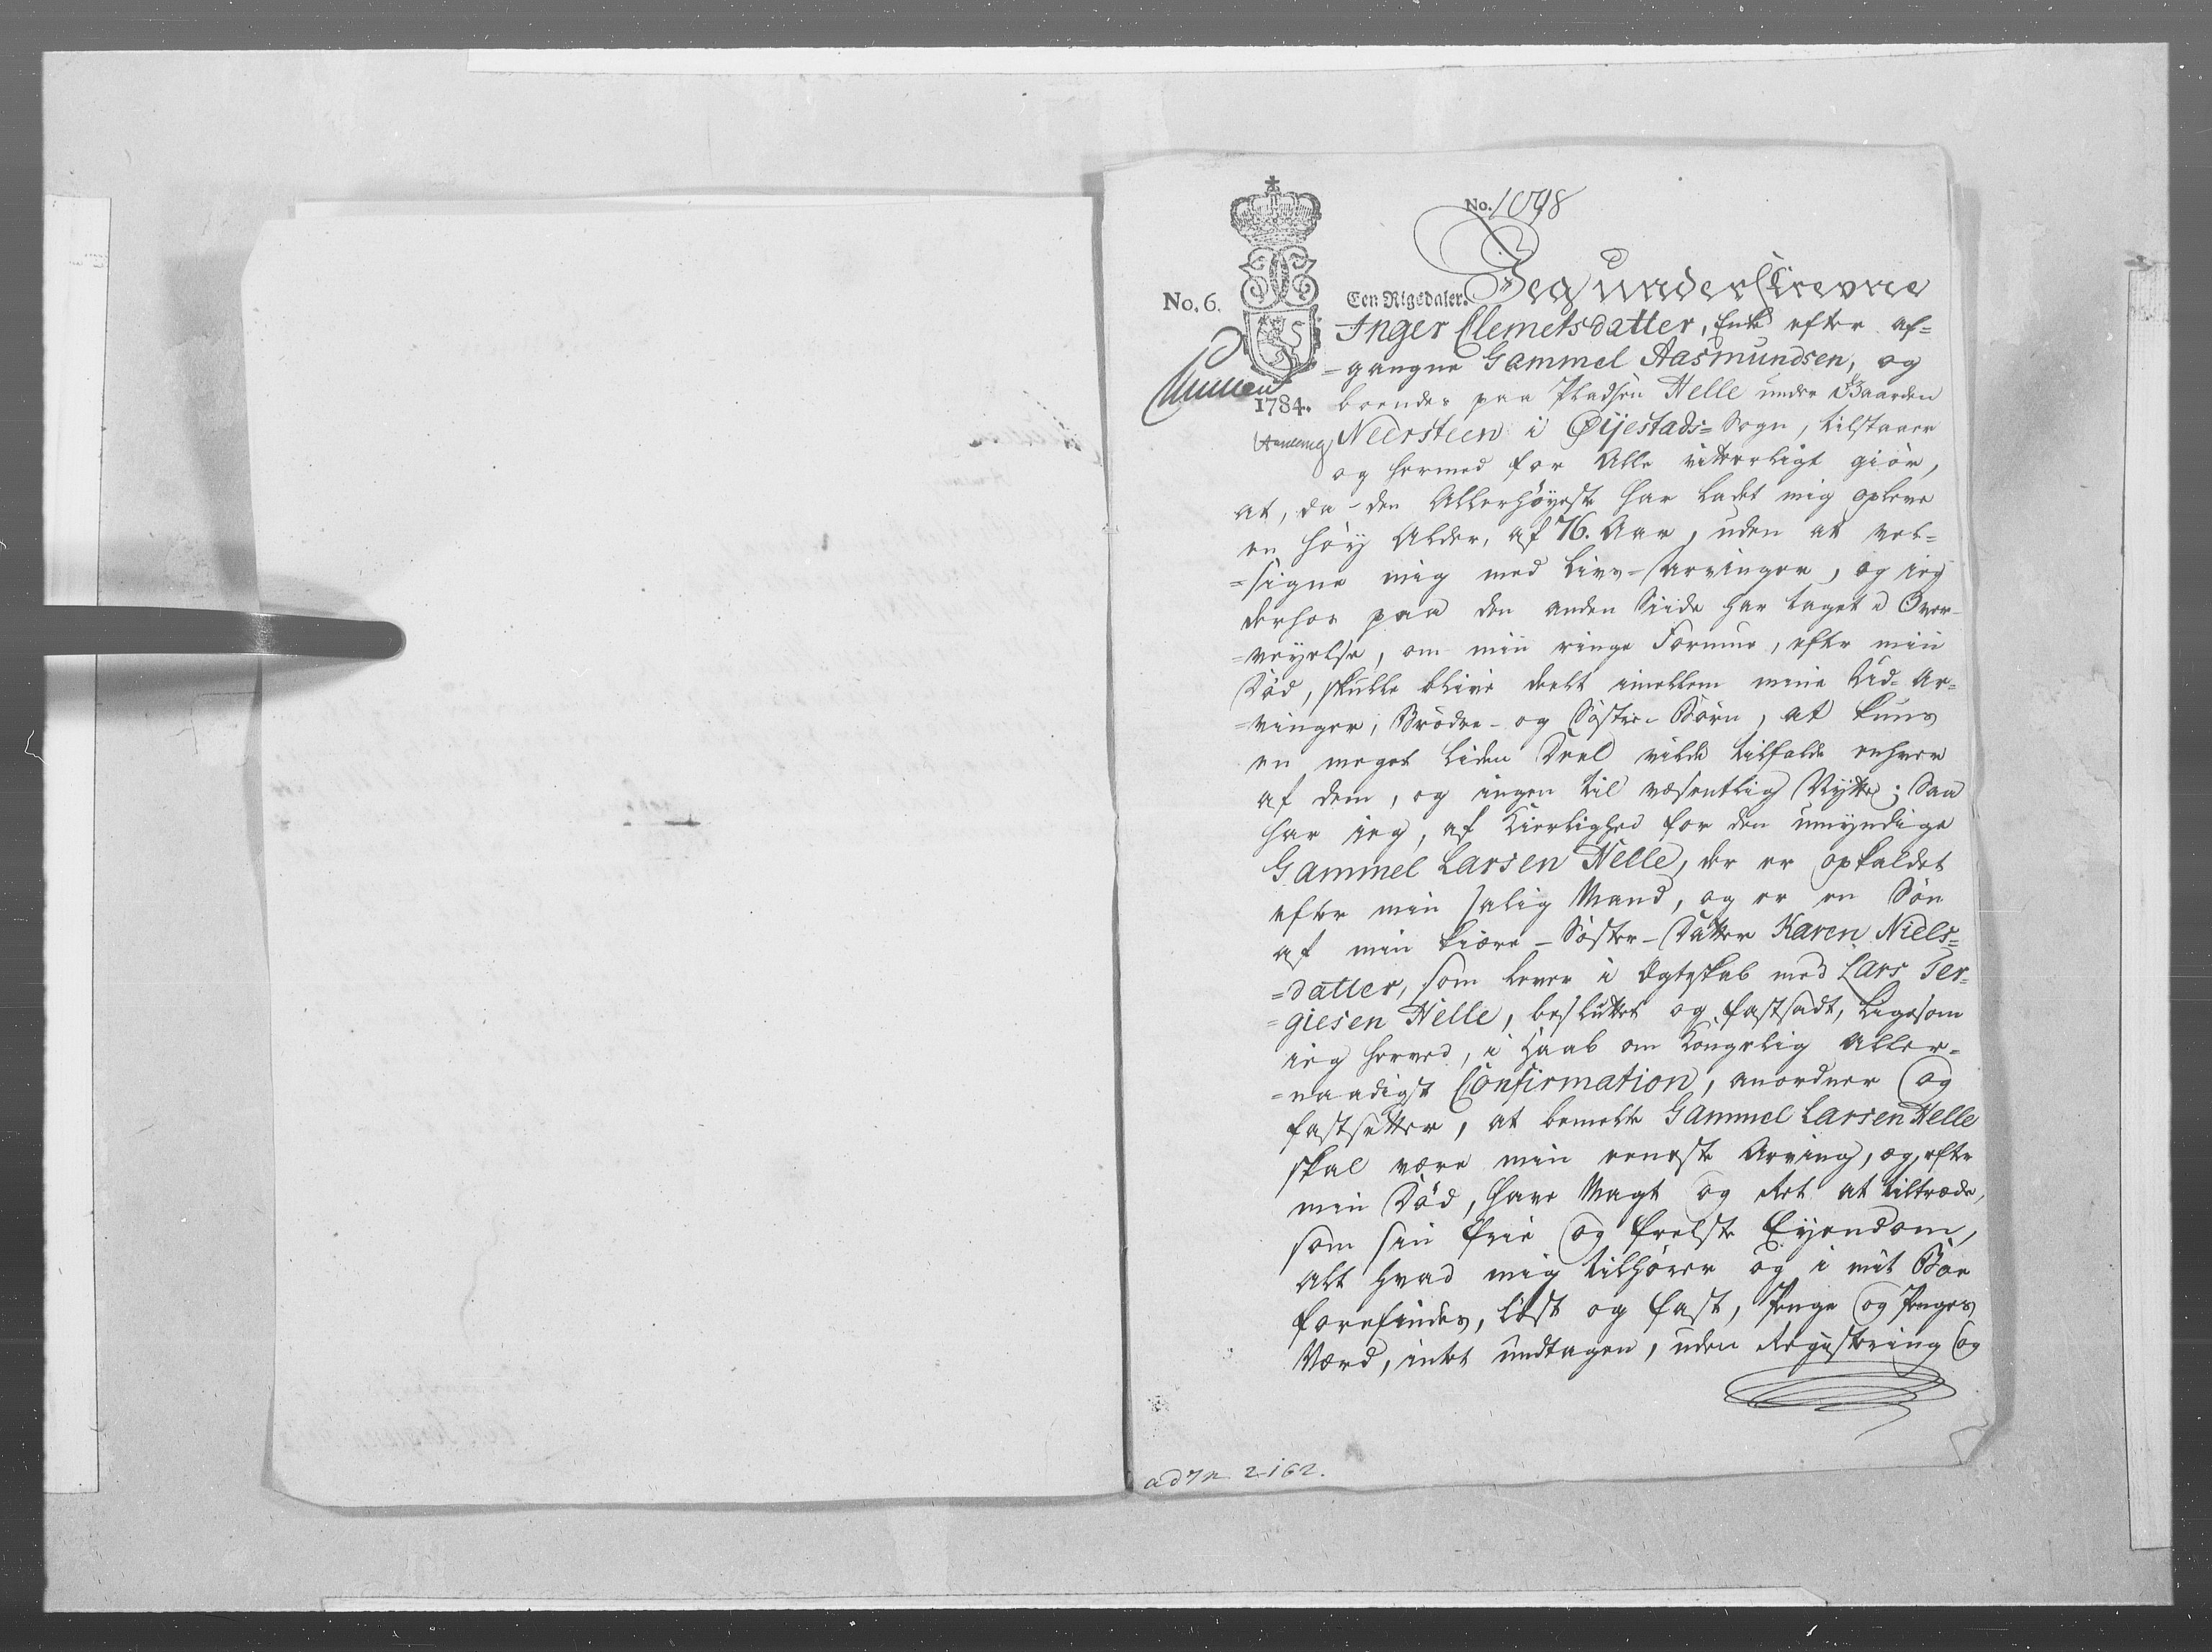 No. 1098
No. 6.
Een Rigsdaler.
Jeg underskrevne
Inger Clemetsdatter, Enke efter af=
=gangne Gammel Aasmundsen, og
1784. boendes paa Pladsen Helle under Gaarden
Neersteen i Øijestads=Sogn, tilstaaer
og hermed for Alle vitterligt giör,
at, da den Allerhöyeste har ladet mig opleve
en höy Alder, af 76. Aar, uden at vel=
=signe mig med Livs-Arvinger, og ieg
derhos paa den anden Siide har taget i Over-
=veyelse, om min ringe Formue, efter min
Död, skulle blive deelt imellem mine Ud-Ar=
=vinger, Brödre- og Söster-Börn, at kuns
en meget liden Deel vilde tilfalde enhver
af dem, og ingen til væsentlig Nytte; Saa
har ieg, af Kierlighed for den umyndige
Gammel Larsen Helle, der er opkaldet
efter min salig Mand, og er en Sön
af min kiære Söster-Datter Karen Niels=
=datter, som lever i Ægteskab med Lars Ter=
=giesen Helle, besluttet og fastsadt, ligesom
ieg herved, i Haab om Kongelig Aller=
=naadigst Confirmation, anordner og
fastsætter, at bemelte Gammel Larsen Helle
skal være min eeneste Arving, og, efter
min Död, have Magt og Ret at tiltræde,
som sin frie og frelste Eyendom,
alt hvad mig tilhörer og i mit Boe
forefindes, löst og fast, Penge og Penges
Værd, intet undtagen, uden Registering og
ad Jr 2162.